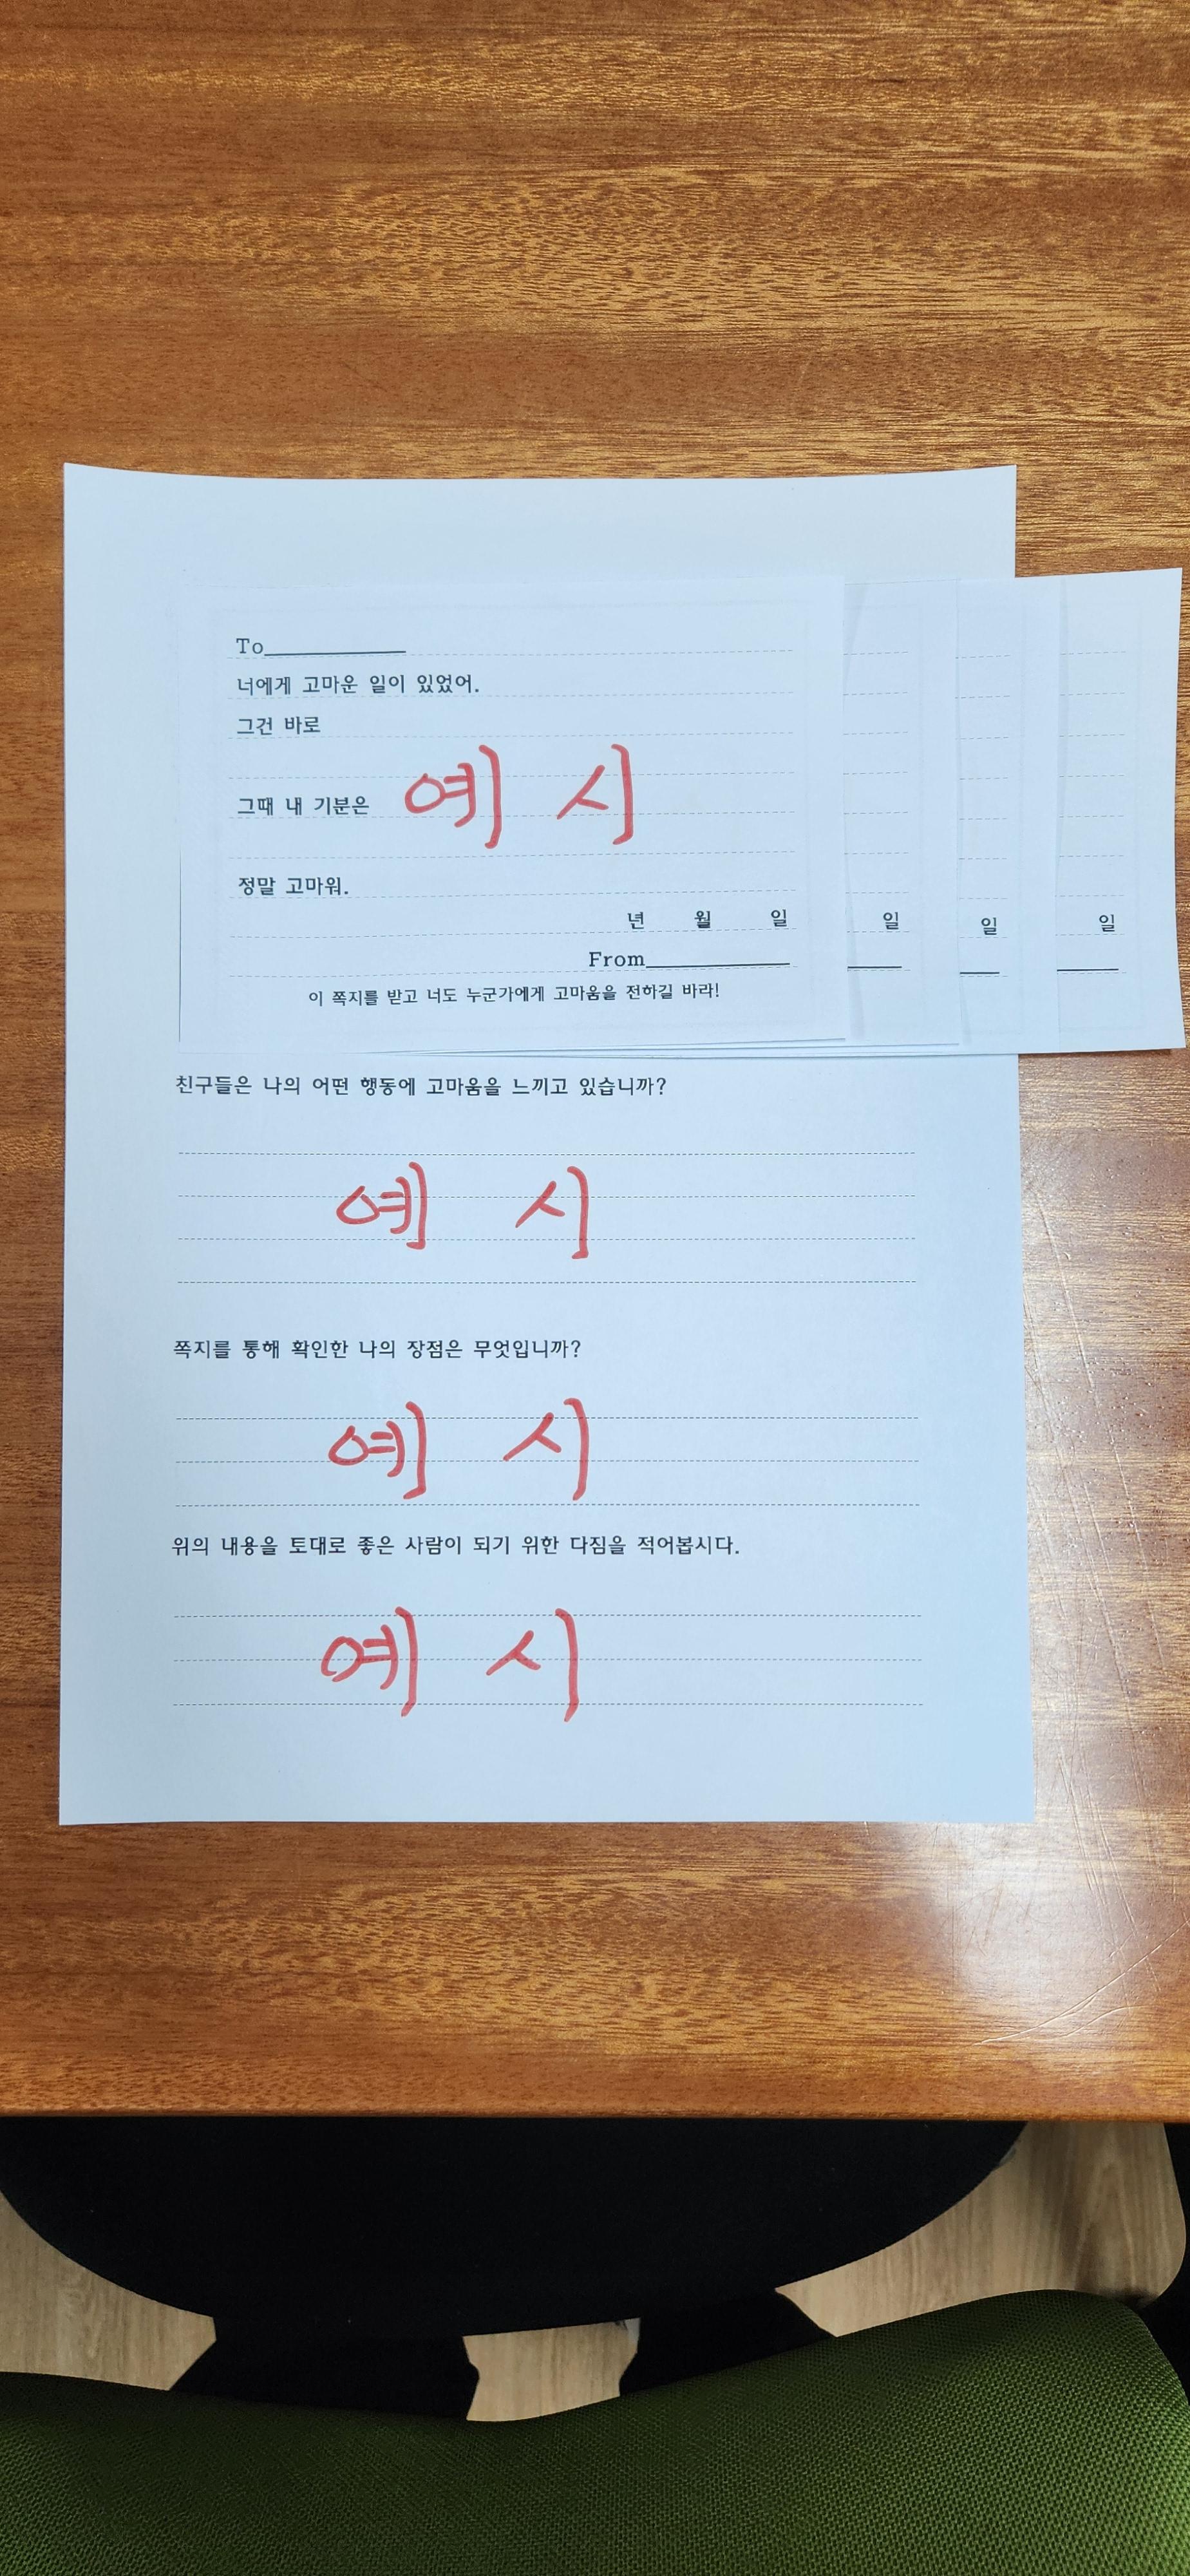 To
너에게 고마운 일이 있었어.
그건 바로
예 시
그때 내 기분은
정말 고마워.
년 월 일 일 일 일
From
이 쪽지를 받고 너도 누군가에게 고마움을 전하길 바라!
친구들은 나의 어떤 행동에 고마움을 느끼고 있습니까?
예 시
쪽지를 통해 확인한 나의 장점은 무엇입니까?
예 시
위의 내용을 토대로 좋은 사람이 되기 위한 다짐을 적어봅시다.
예 시